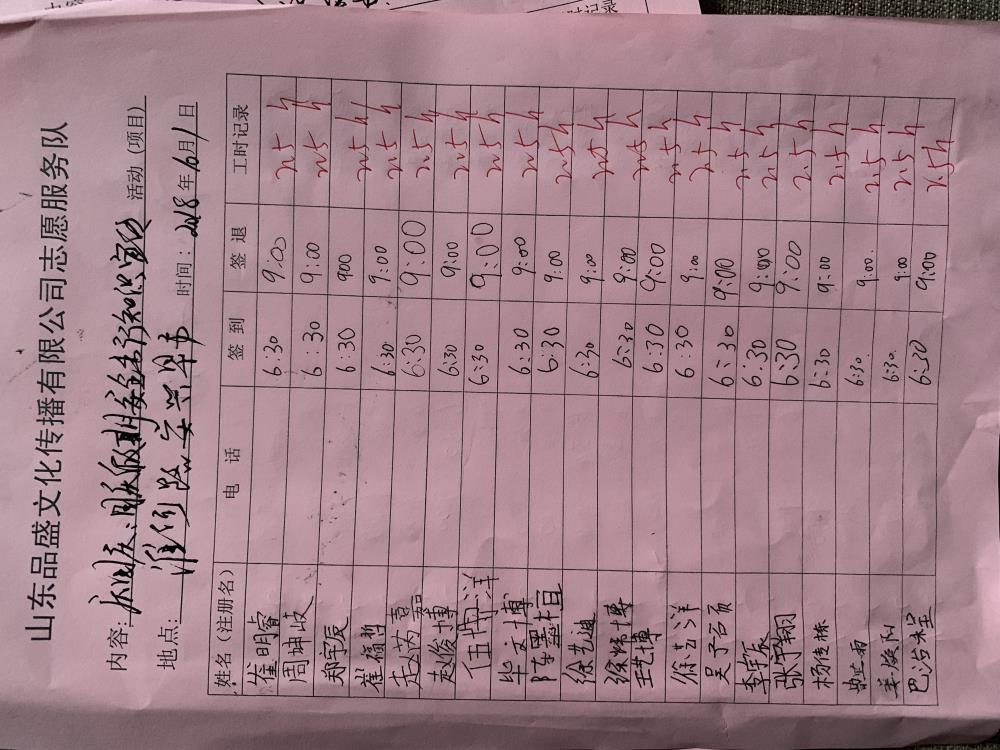 时记录
山东品盛文化传播有限公司志愿服务队
内容: 活动(项目)
地点: 时间: 2018年6月1日
姓名(注册名) 电 话 签 到 签 退 工时记录
崔明睿 6:30 9:00 2.5h
周坤歧 6:30 9:00 2.5h
郑宇辰 6:30 900 2.5h
崔福哲 6:30 9:00 2.5h
赵芮嘉 6:30 9:00 2.5h
赵俊博 6:30 9:00 2.5h
伍翀洋 6:30 9:00 2.5h
毕文博 6:30 9:00 2.5h
陈墨桓 6:30 9:00 2.5h
徐艺迪 6:30 9:00 2.5h
徐炜博 6:30 9:00 2.5h
王艺博 6:30 9:00 2.5h
徐艺洋 6:30 9:00 2.5h
吴予硕 6:30 9:00 2.5h
李宇辰 6:30 9:00 2.5h
张宇翔 6:30 9:00 2.5h
杨佳栋 6:30 9:00 2.5h
6:30 9:00 2.5h
姜 6:30 9:00 2.5h
巴治 6:30 9:00 2.5h